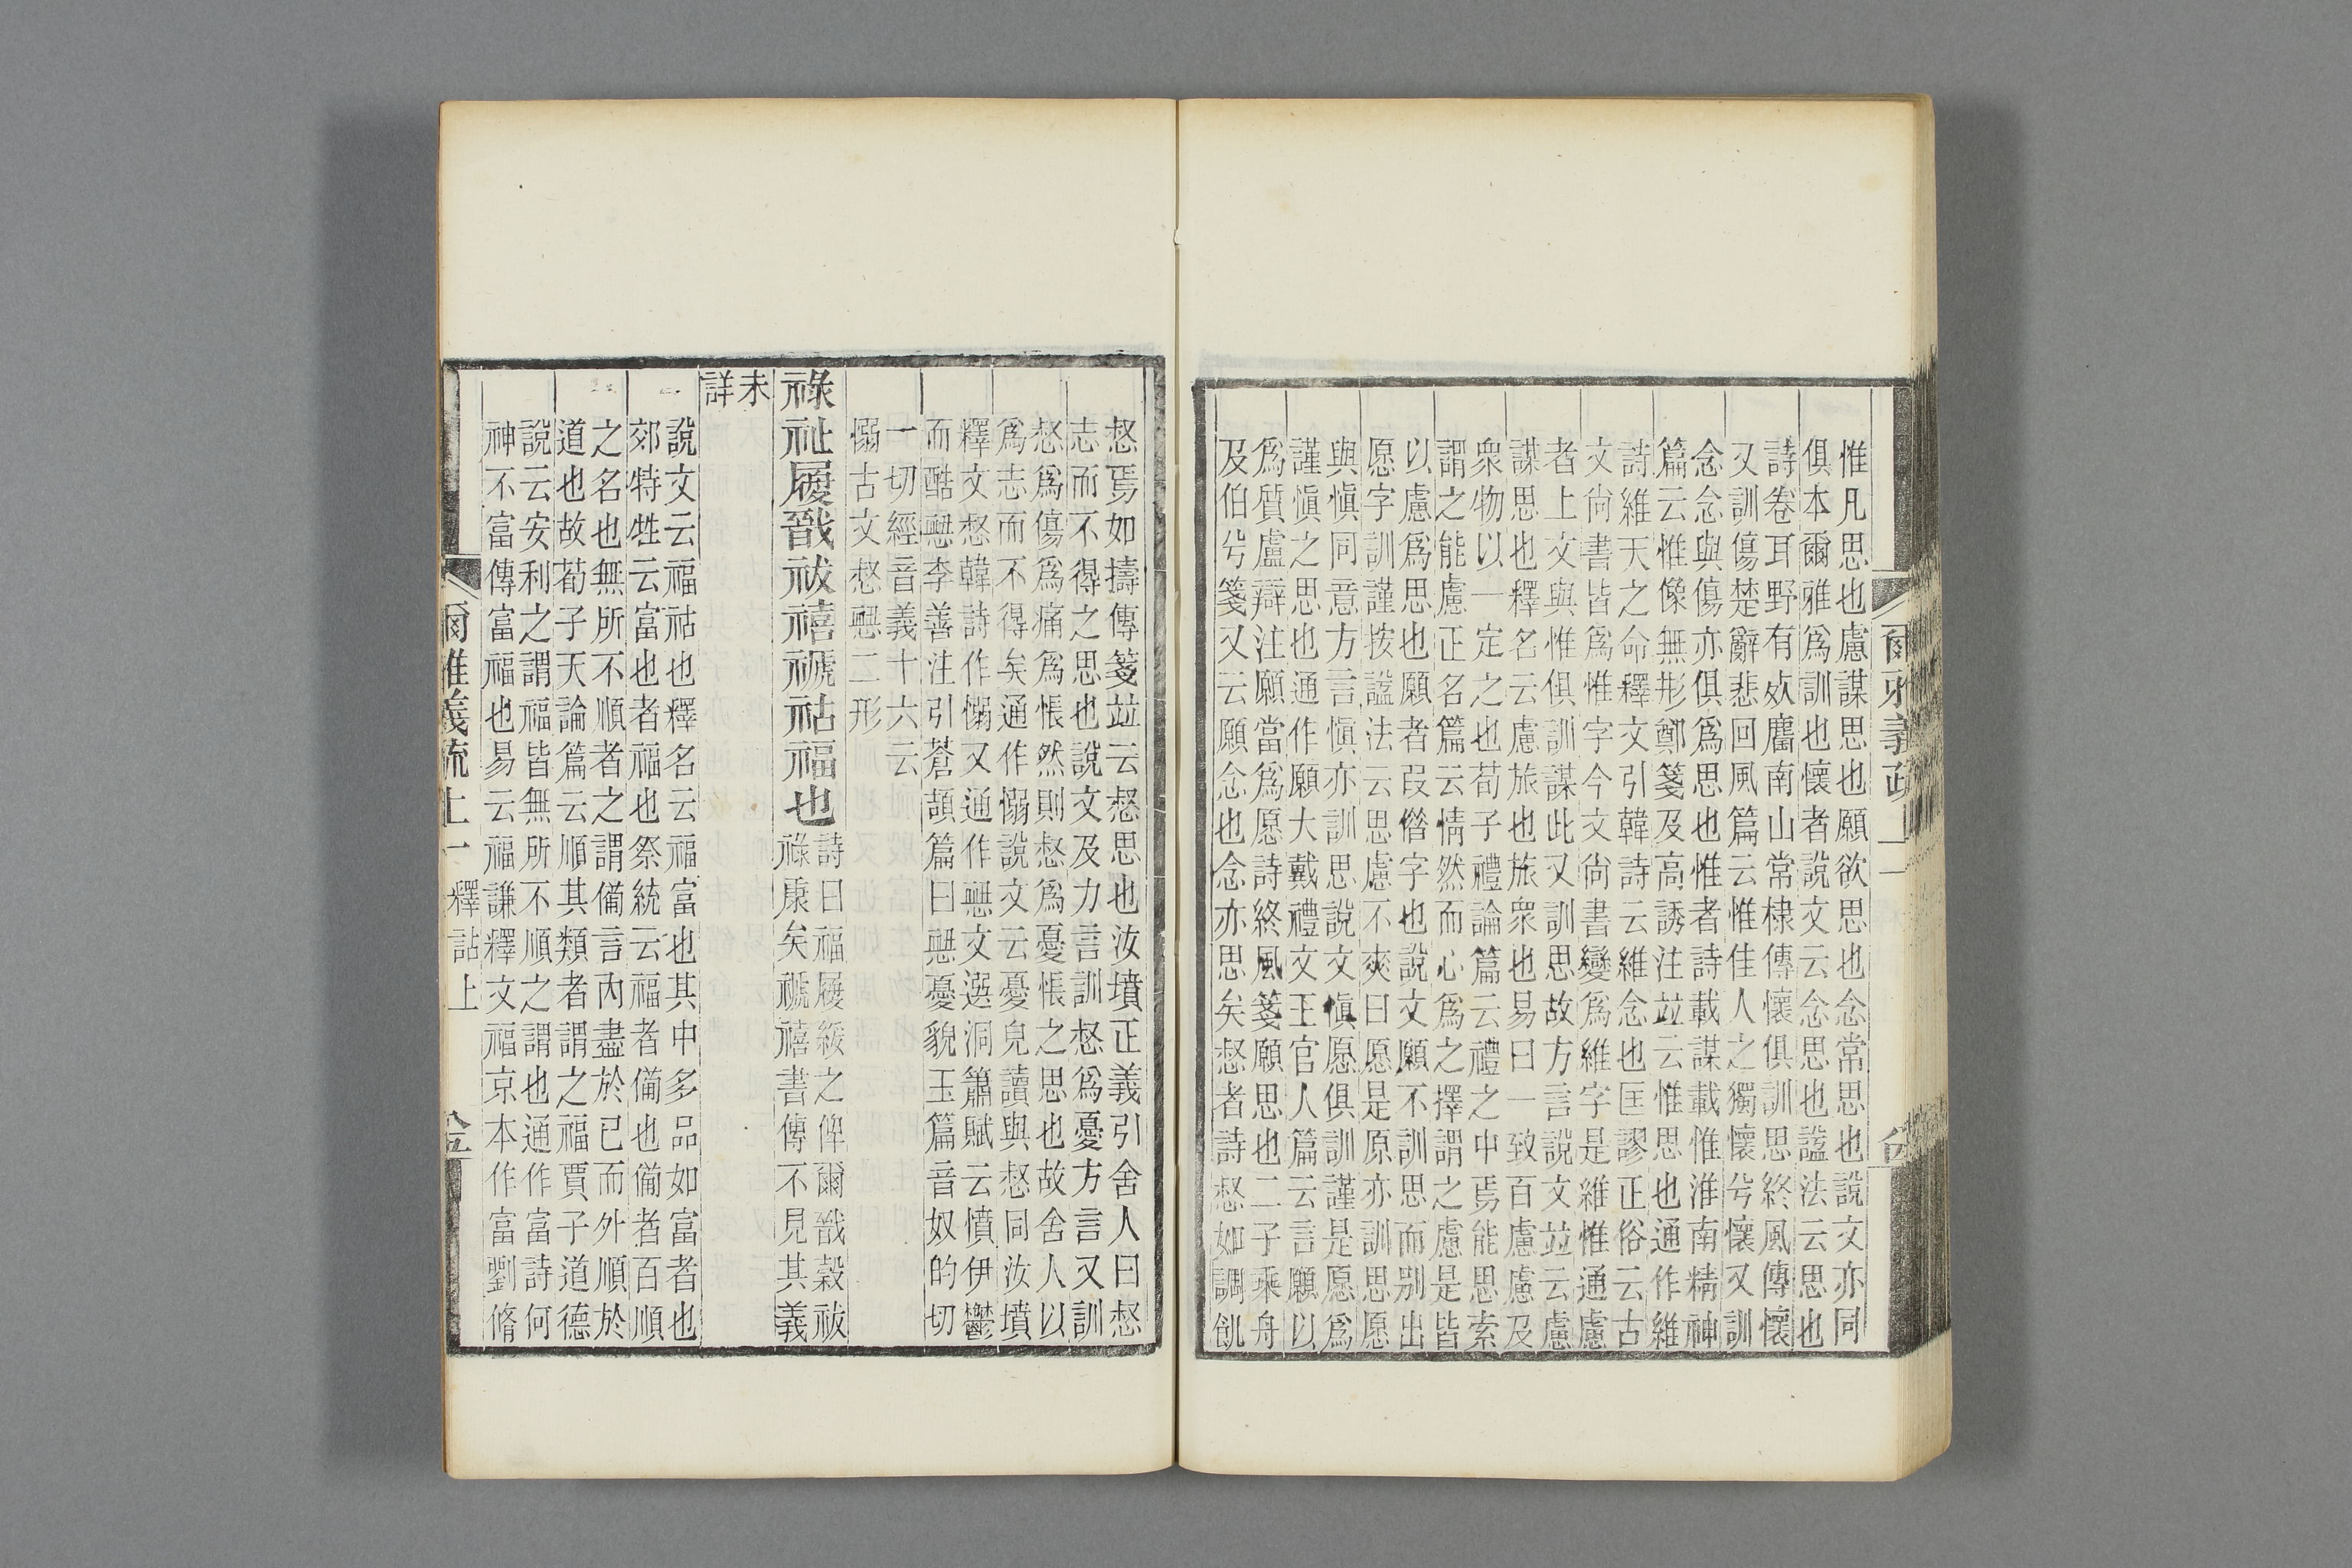 惟凡思也慮謀思也願欲思也念常思也說文亦同
俱本爾雅爲訓也懷者說文云念思也諡法云思也
詩卷耳野有𣦸麕南山常棣傳懷俱訓思終風傳懷
又訓傷楚辭悲回風篇云惟佳人之獨懷兮懷又訓
念念與傷亦俱爲思也惟者詩載謀載惟淮南精神
篇云惟像無形鄭箋及高誘注竝云惟思也通作維
詩維天之命釋文引韓詩云維念也匡謬正俗云古
文尙書皆爲惟字今文尙書變爲維字是維惟通慮
者上文與惟俱訓謀此又訓思故方言說文竝云慮
謀思也釋名云慮旅也旅衆也易曰一致百慮慮及
衆物以一定之也荀子禮論篇云禮之中焉能思索
謂之能慮正名篇云情然而心爲之擇謂之慮是皆
以慮爲思也願者叚僭字也說文願不訓思而別出
愿字訓謹按諡法云思慮不爽曰愿是原亦訓思愿
與愼同意方言愼亦訓思說文愼愿俱訓謹是愿爲
謹愼之思也通作願大戴禮文王官人篇云言願以
爲質盧辯注願當爲愿詩終風箋願思也二子乘舟
及伯兮箋又云願念也念亦思矣惄者詩惄如調飢
爾雅義疏 上一
惄焉如擣傳箋竝云惄思也汝墳正義引舍人曰惄
志而不得之思也說文及力言訓惄爲憂方言又訓
惄爲傷爲痛爲悵然則惄爲憂悵之思也故舍人以
爲志而不得矣通作惄說文云憂皃讀與惄同汝墳
釋文惄韓詩作愵又通作𢛄文選洞簫賦云憤伊鬱
而酷𢛄李善注引蒼頡篇曰𢛄憂貌玉篇音奴的切
一切經音義十六云
愵古文惄𢛄二形
祿祉履戩祓禧禠祜福也
詩曰福履綏之俾爾戩穀祓
祿康矣禠禧書傳不見其義
未
詳
說文云福祜也釋名云福富也其中多品如富者也
郊特牲云富也者福也祭統云福者備也備者百順
之名也無所不順者之謂備言內盡於已而外順於
道也故荀子天論篇云順其類者謂之福賈子道德
說云安利之謂福皆無所不順之謂也通作富詩何
神不富傳富福也易云福謙釋文福京本作富劉脩
爾雅義疏 上一 釋詁上